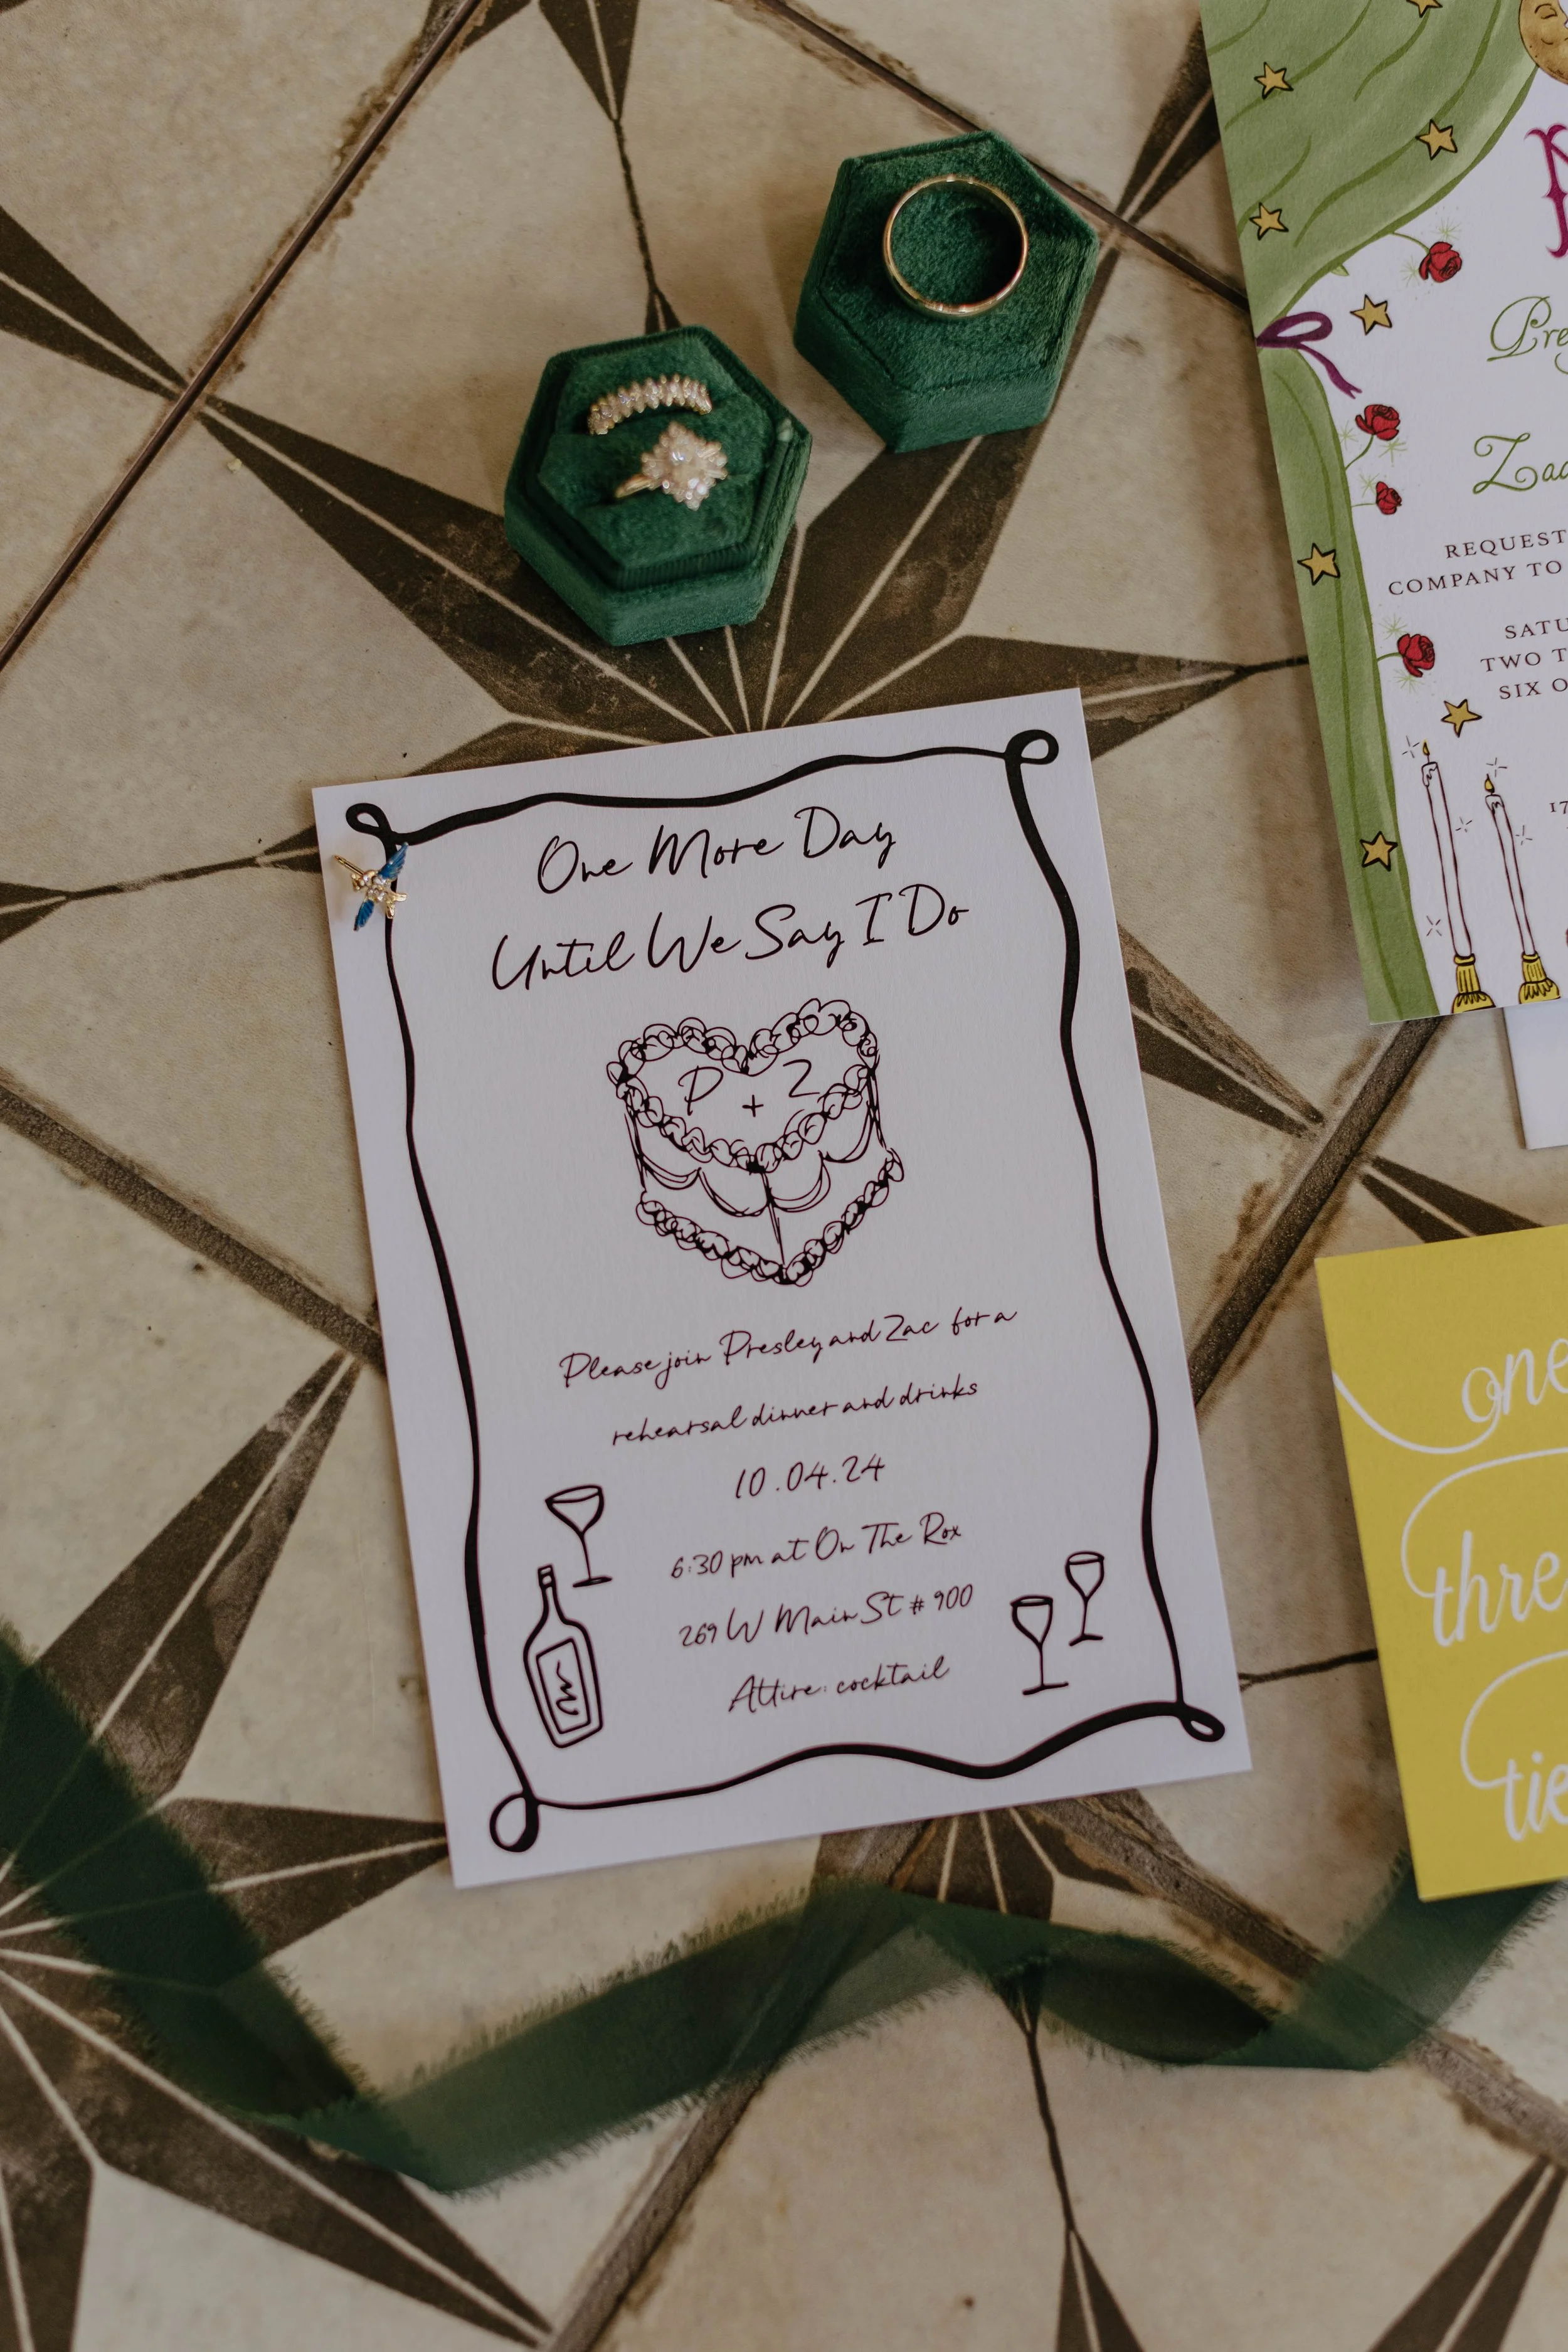 One More Day
Until We Say I Do
P + Z
Please join Presley and Zac for a
rehearsal dinner and drinks
10.04.24
6:30 pm at On The Rox
269 W Main St # 900
Attire: cocktail
REQUEST
COMPANY TO
TWO
SIX
17
one